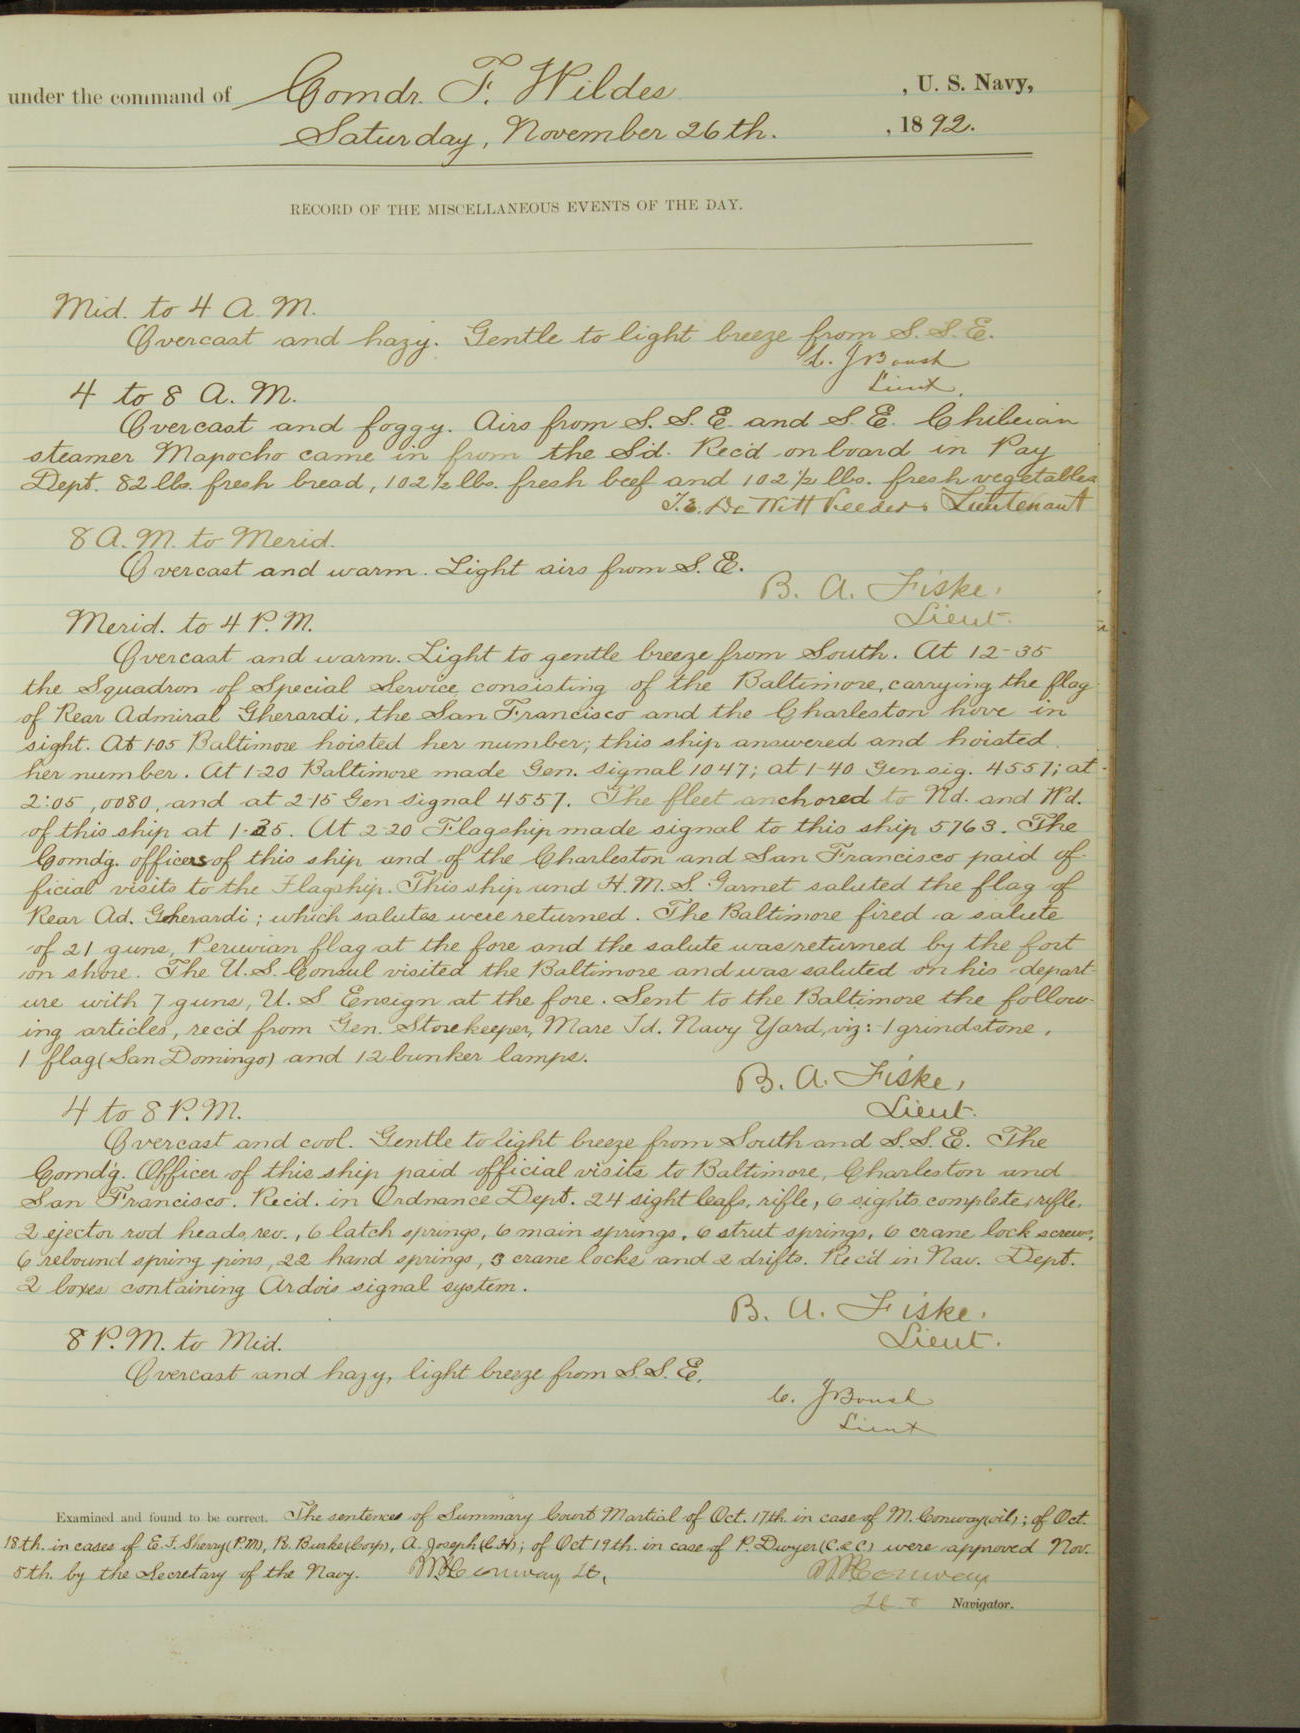 under the command of Comdr. F. Wildes , U. S. Navy,
Saturday, November 26th. , 1892.
RECORD OF THE MISCELLANEOUS EVENTS OF THE DAY.
Mid. to 4 A. M.
Overcast and hazy. Gentle to light breeze from S. S. E.
C. J Boush
Lieut.
4 to 8 A. M.
Overcast and foggy. Airs from S. S. E. and S. E. Chileian
steamer Mapocho came in from the Sd. Recd on board in Pay
Dept. 82 lbs. fresh bread, 102 1/2 lbs. fresh beef and 102 1/2 lbs. fresh vegetables
T. E. De Witt Veeder. Lieutenant
8 A. M. to Merid.
Overcast and warm. Light airs from S. E.
B. A. Fiske,
Lieut.
Merid. to 4 P. M.
Overcast and warm. Light to gentle breeze from South. At 12-35
the Squadron of Special Service, consisting of the Baltimore, carrying the flag
of Rear Admiral Gherardi, the San Francisco and the Charleston hove in
sight. At 1-05 Baltimore hoisted her number; this ship answered and hoisted
her number. At 1-20 Baltimore made Gen. signal 1047; at 1-40 Gen sig. 4557; at
2:05, 0080, and at 2-15 Gen signal 4557. The fleet anchored to Nd. and Wd.
of this ship at 1-35. At 2-20 Flagship made signal to this ship 5763. The
Comd'g. officers of this ship and of the Charleston and San Francisco paid of-
ficial visits to the Flagship. This ship and H. M. S. Garnet saluted the flag of
Rear Ad. Gherardi; which salutes were returned. The Baltimore fired a salute
of 21 guns, Peruvian flag at the fore and the salute was returned by the fort
on shore. The U. S. Consul visited the Baltimore and was saluted on his depart-
ure with 7 guns, U. S Ensign at the fore. Sent to the Baltimore the follow-
ing articles, rec'd from Gen. Storekeeper, Mare Id. Navy Yard, viz: - 1 grindstone,
1 flag (San Domingo) and 12 bunker lamps.
B. A. Fiske,
Lieut.
4 to 8 P. M.
Overcast and cool. Gentle to light breeze from South and S. S. E. The
Comd'g. Officer of this ship paid official visits to Baltimore, Charleston and
San Francisco. Recd. in Ordnance Dept. 24 sight leafs, rifle, 6 sights complete, rifle,
2 ejector rod heads, rev., 6 latch springs, 6 main springs, 6 strut springs, 6 crane lock screws,
6 rebound spring pins, 22 hand springs, 3 crane locks and 2 drifts. Rec'd in Nav. Dept.
2 boxes containing Ardois signal system.
B. A. Fiske,
Lieut.
8 P. M. to Mid.
Overcast and hazy, light breeze from S. S. E.
C. J Boush
Lieut
Examined and found to be correct. The sentences of Summary Court Martial of Oct. 17th. in case of M. Conway (oil); of Oct.
18th. in cases of E. F. Sherry (P. M), R. Burke (Corp), A. Joseph (C. H); of Oct 19th. in case of P. Dwyer (C. & C) were approved Nov.
5th. by the Secretary of the Navy. Conway, Lt,
Conway
Lt Navigator.